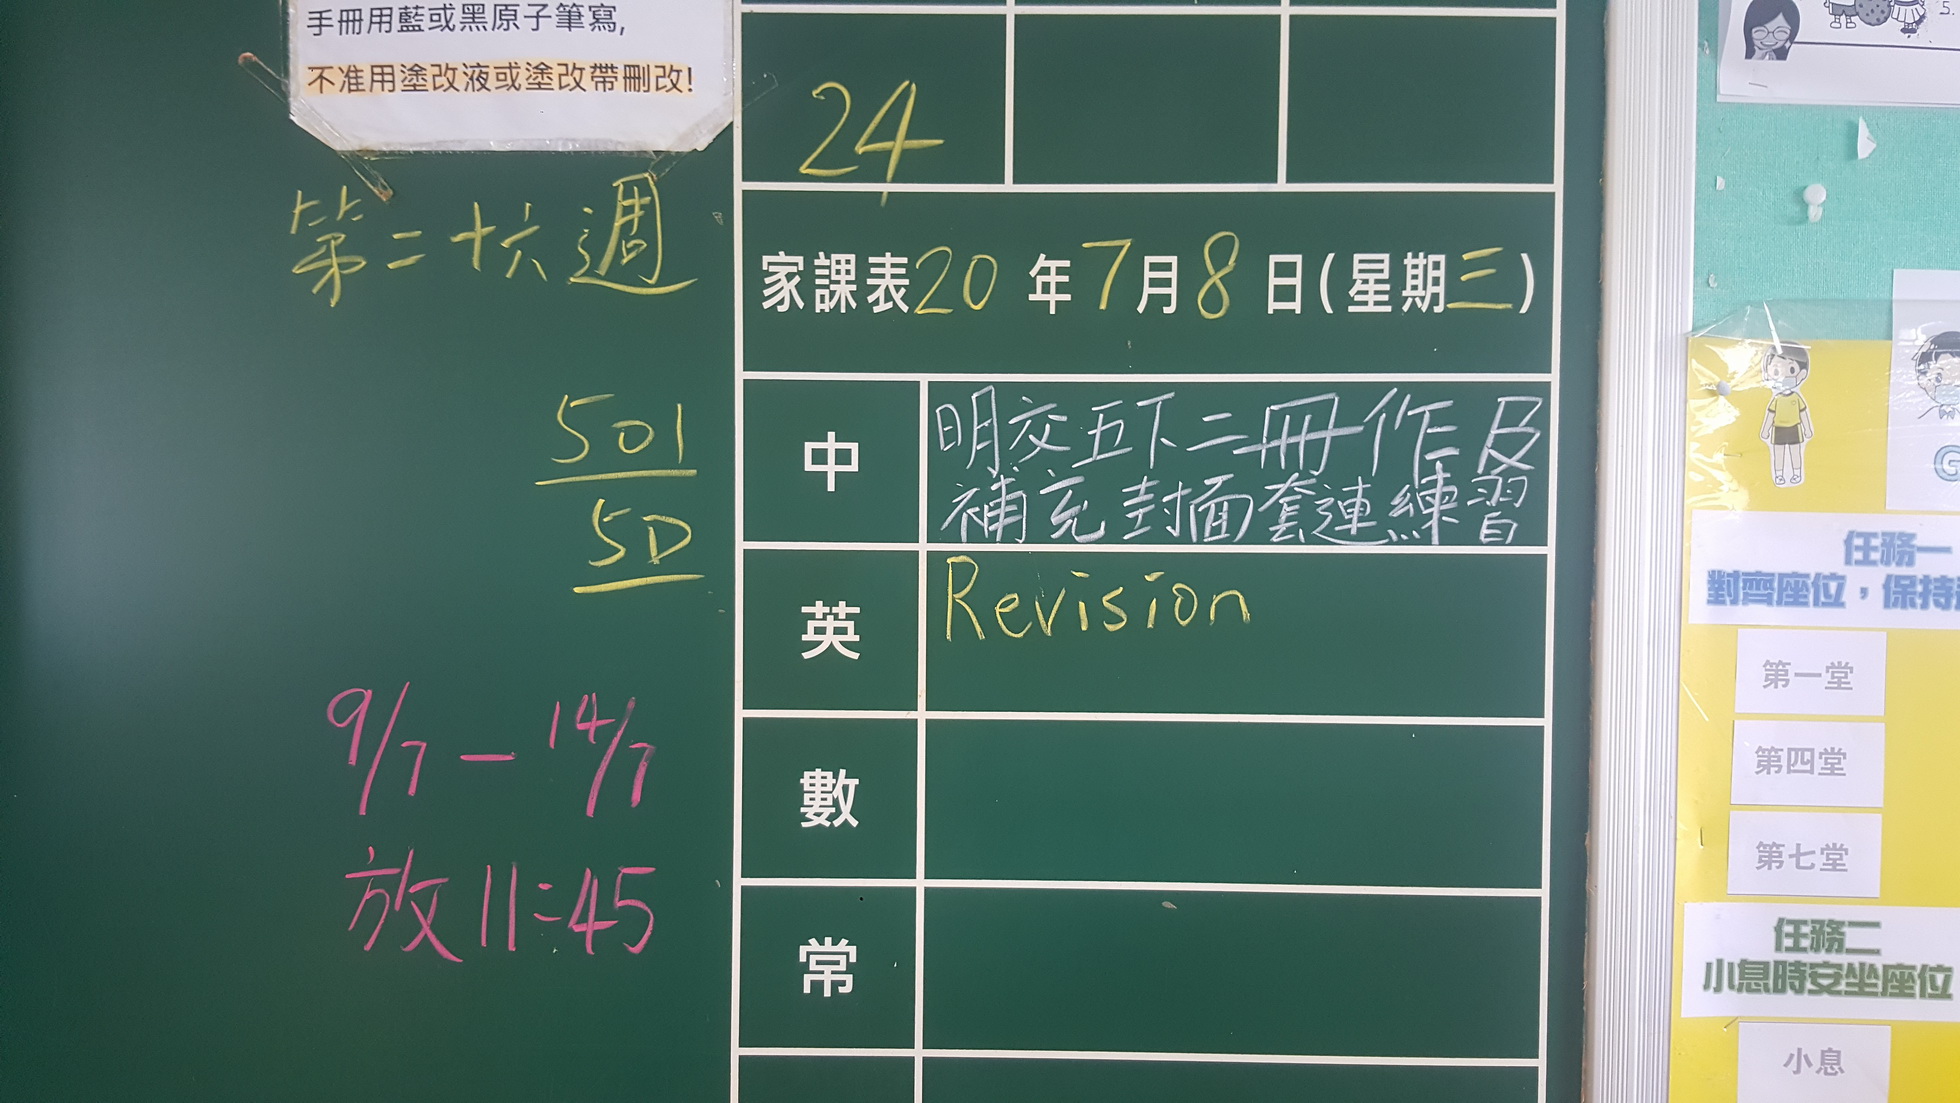 手冊用藍或黑原子筆寫,
不准用塗改液或塗改帶刪改!
24
第二十六週
家課表20年7月8日(星期三)
501
5D
中
明交五下二冊作及
補充封面套連練習
英
Revision
9/7 — 14/7
數
放11:45
常
5.
G
任務一
對齊座位,保持
第一堂
第四堂
第七堂
任務二
小息時安坐座位
小息